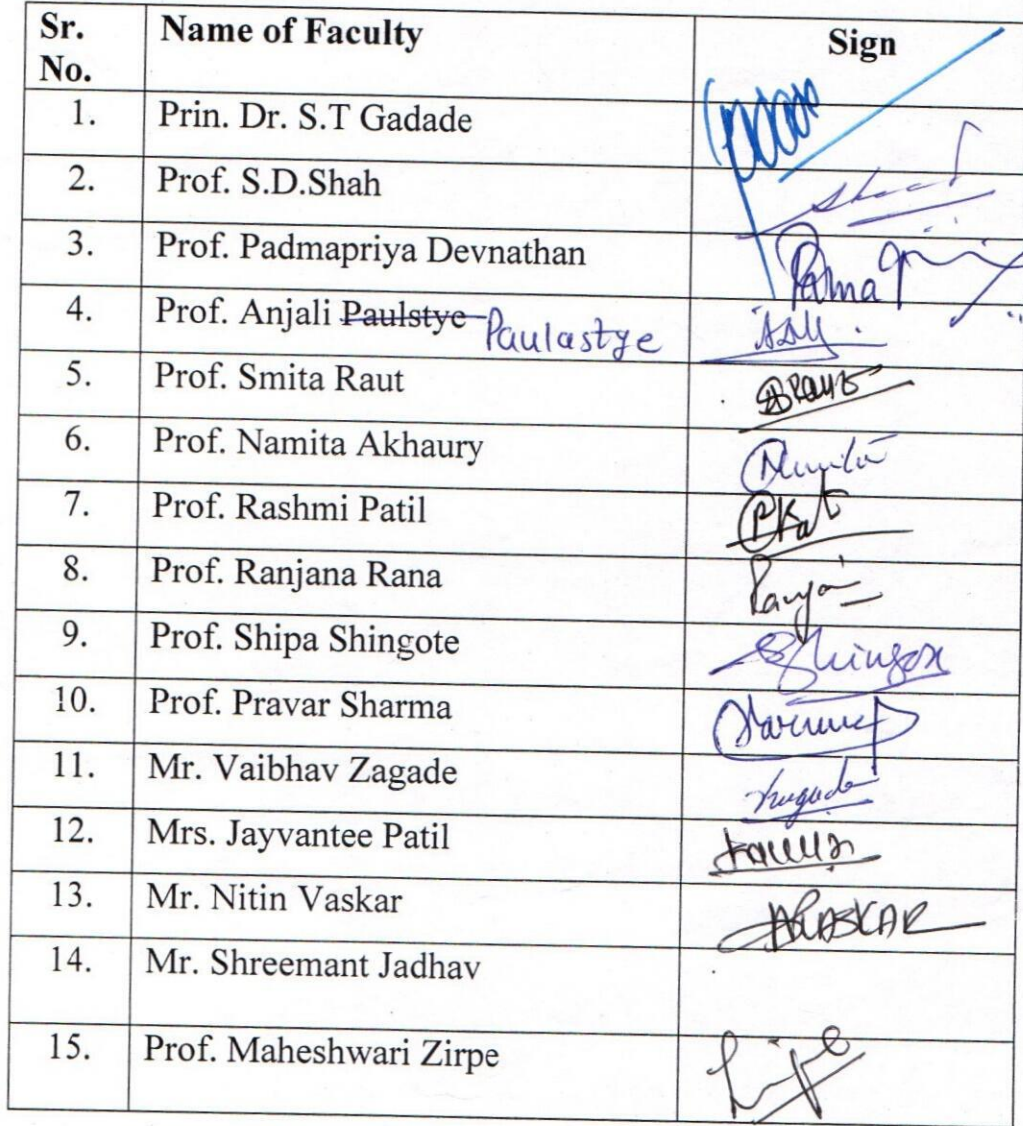 Sr. No. Name of Faculty Sign
1. Prin. Dr. S.T Gadade
2. Prof. S.D.Shah
3. Prof. Padmapriya Devnathan Padma
4. Prof. Anjali Paulstye Paulastye
5. Prof. Smita Raut
6. Prof. Namita Akhaury
7. Prof. Rashmi Patil
8. Prof. Ranjana Rana
9. Prof. Shipa Shingote
10. Prof. Pravar Sharma
11. Mr. Vaibhav Zagade
12. Mrs. Jayvantee Patil
13. Mr. Nitin Vaskar
14. Mr. Shreemant Jadhav
15. Prof. Maheshwari Zirpe